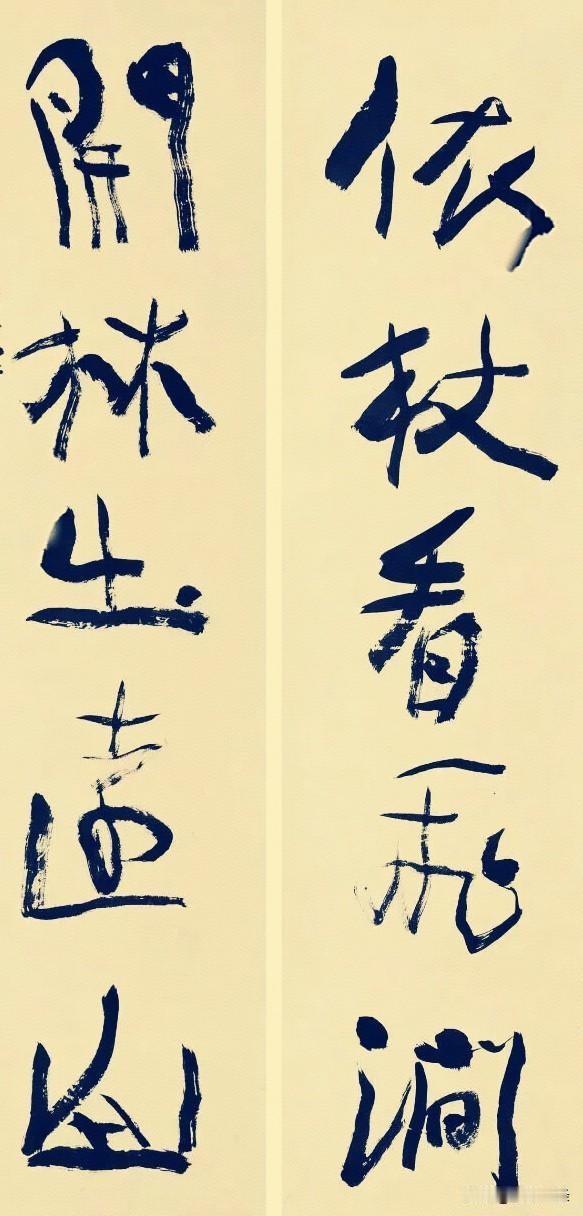 依杖看飛澗
開林出遠